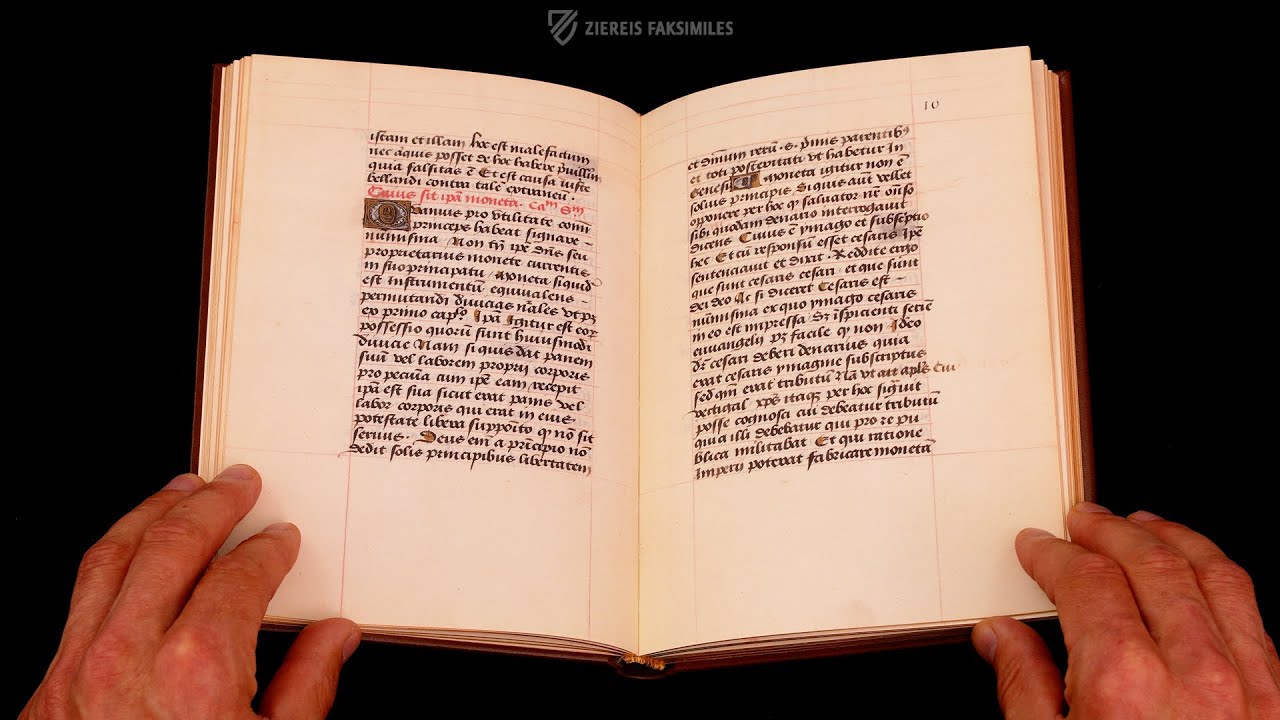 ZIEREIS FAKSIMILES
istam et illam hoc est malefactum
nec aliquis posset de hoc habere priuilegium
quia falsitas ē Et est causa iuste
bellandi contra talē extraneū .
Cuius sit ipā moneta . Caᵐ Sᵐ
Quamuis pro vtilitate comī
princeps habeat signare –
numisma Non tn̄ ipe dn̄s seu
proprietarius monete currentis
in suo principatu Moneta siquid
est instrumentū equiualens –
permutandi diuicias nāles vt pꝫ
ex primo capᵒ Ipā Igitur est eoꝝ
possessio quorū sunt huiusmodi
diuicie Nam si quis dat panem
suū vel laborem proprij corporis
pro pecūia cum ipē eam recepit
ipā est sua sicut erat panis vel
labor corporis qui erat in eius
potestate libera supposito ꝙ nō sit
seruus . Deus em̄ a prīcipio nō
dedit solis principibus libertatem
10
et dn̄ium rerū . s . pīmis parentibꝰ
et toti posteritati vt habetur In
Genesi Moneta igitur non ē
solius principis Si quis aūt vellet
opponere per hoc ꝙ saluator nr̄
sibi quodam denario interrogauit
dicens Cuius ē ymago et subscptio
hec Et cū responsū esset cesaris Ipē
sentenciauit et dixit . Reddite ergo
que sunt cesaris cesari . et que sunt
dei deo Ac si diceret Cesaris est –
numisma ex quo ymago cesaris
in eo est impressa / Sꝫ īspicienti seriē
euuangelij pꝫ facile ꝙ non Ideo
dr̄ cesari deberi denarius quia
erat cesaris ymagine subscriptus
sed qm̄ erat tributū Nā vt ait apl̄s Cui
vectigal . xp̄s itaqꝫ per hoc sig̅uit
posse cognosci cui debeatur tributū
quia illi debebatur qui pro re pu
blica militabat Et qui ratione
Imperij poterat fabricare monetā